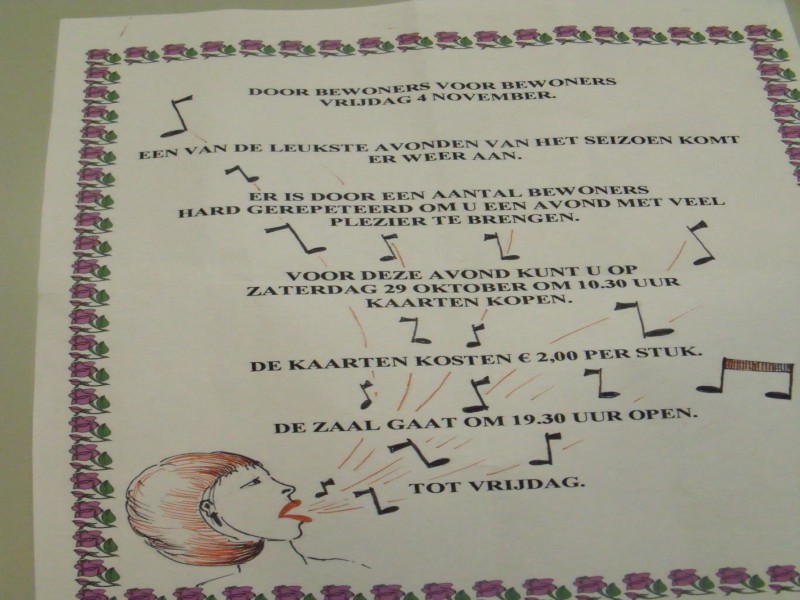 DOOR BEWONERS VOOR BEWONERS
VRIJDAG 4 NOVEMBER.
EEN VAN DE LEUKSTE AVONDEN VAN HET SEIZOEN KOMT
ER WEER AAN.
ER IS DOOR EEN AANTAL BEWONERS
HARD GEREPETEERD OM U EEN AVOND MET VEEL
PLEZIER TE BRENGEN.
VOOR DEZE AVOND KUNT U OP
ZATERDAG 29 OKTOBER OM 10.30 UUR
KAARTEN KOPEN.
DE KAARTEN KOSTEN € 2,00 PER STUK.
DE ZAAL GAAT OM 19.30 UUR OPEN.
TOT VRIJDAG.